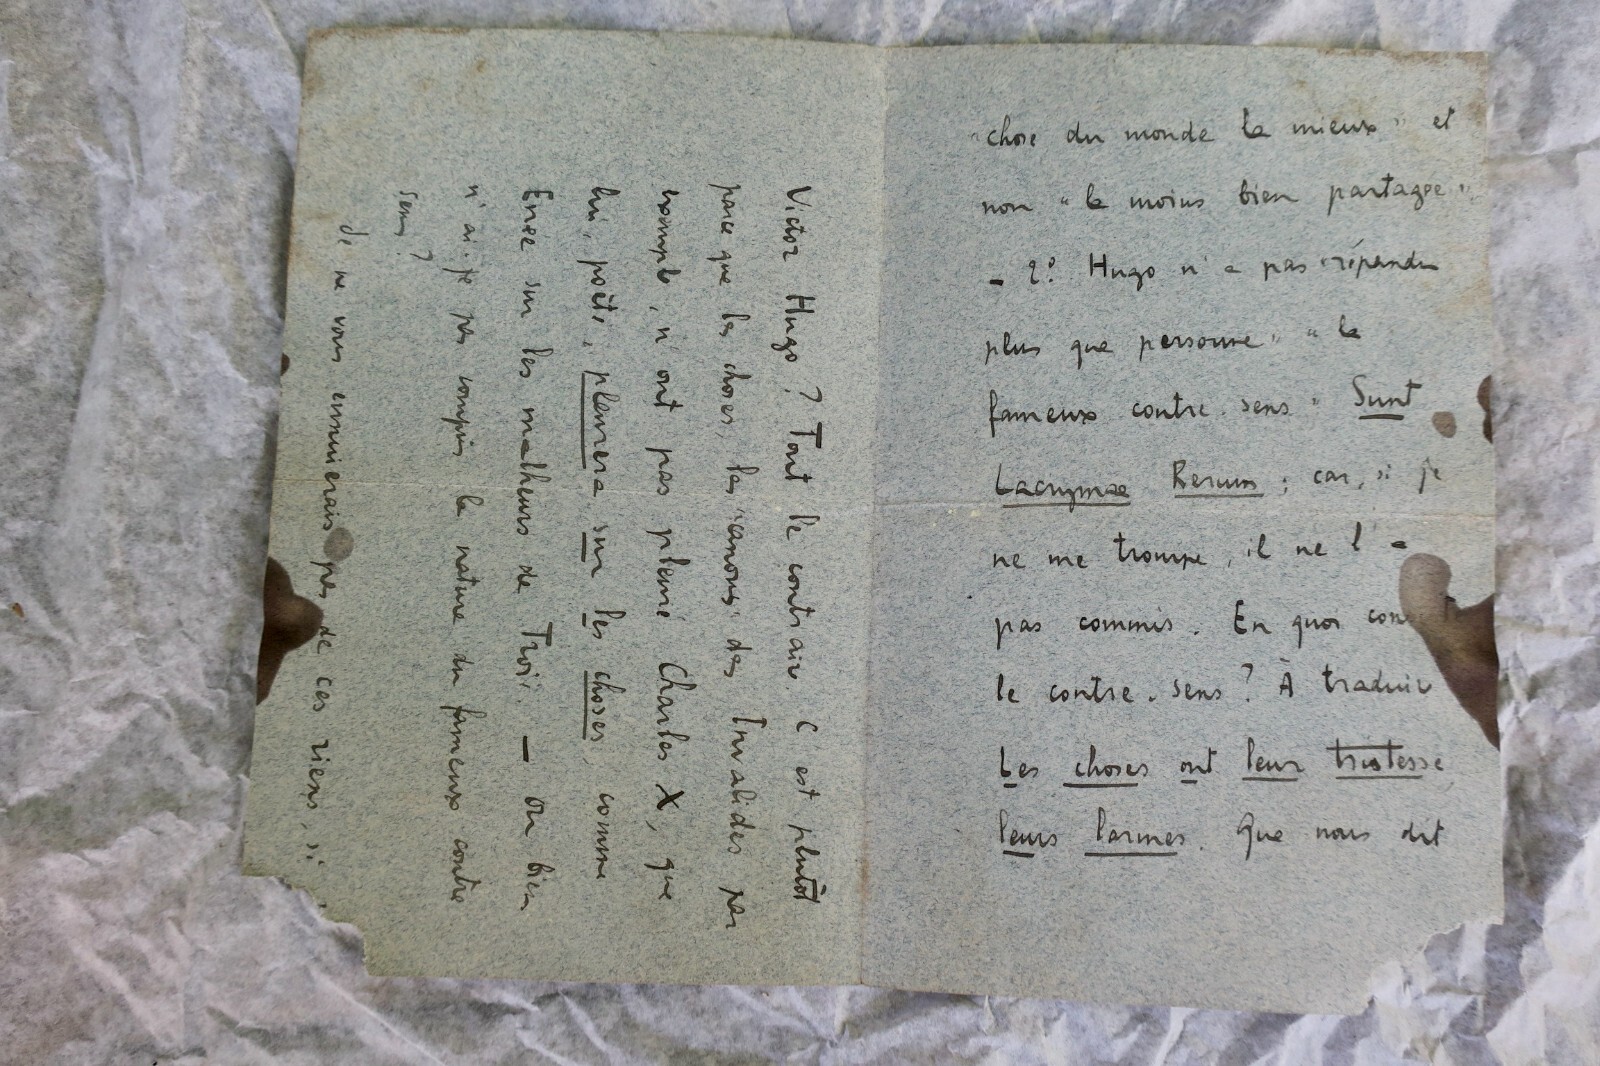 chose du monde la mieux" et
non "la moins bien partagée".
– 2° Hugo n'a pas "répandu
plus que personne" "le
fameux contre-sens" Sunt
Lacrymae Rerum ; car, si je
ne me trompe, il ne l'a
pas commis. En quoi
le contre-sens ? À traduire
Les choses ont leur tristesse,
leurs larmes. Que nous dit
Victor Hugo ? Tout le contraire. C'est plutôt
parce que les choses, les "canons" des Invalides par
exemple, n'ont pas pleuré Charles X, que
lui, poète, pleurera sur les choses, comme
Enée sur les malheurs de Troie. – Ou bien
n'ai-je pas compris la nature du fameux contre
sens ?
Je ne vous ennuierais pas de ces riens, si